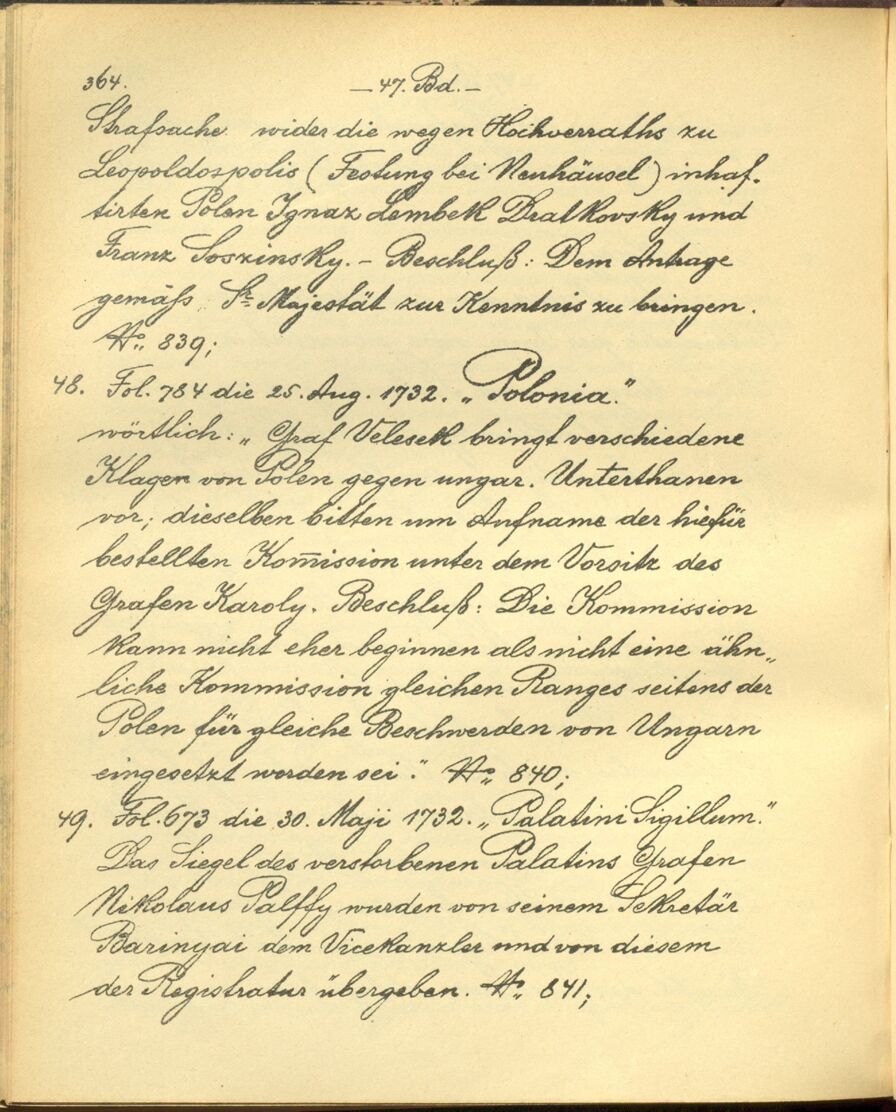 364.
— 47. Bd. —
Strafsache wider die wegen Hochverraths zu
Leopoldospolis (Festung bei Neuhäusel) inhaf-
tirten Polen Ignaz Lembek Dralkovsky und
Franz Soszinsky. – Beschluß: Dem Antrage
gemäß Sr. Majestät zur Kenntnis zu bringen.
No. 839;
48. Fol. 784 die 25. Aug. 1732. „Polonia."
wörtlich: „Graf Velesek bringt verschiedene
Klagen von Polen gegen ungar. Unterthanen
vor; dieselben bitten um Aufname der hiefür
bestellten Kom̄ission unter dem Vorsitz des
Grafen Karoly. Beschluß: Die Kommission
kann nicht eher beginnen als nicht eine ähn„
liche Kommission gleichen Ranges seitens der
Polen für gleiche Beschwerden von Ungarn
eingesetzt worden sei." No. 840;
49. Fol. 673 die 30. Maji 1732. „Palatini Sigillum."
Das Siegel des verstorbenen Palatins Grafen
Nikolaus Palffy wurden von seinem Sekretär
Barinyai dem Vicekanzler und von diesem
der Registratur übergeben. No. 841;